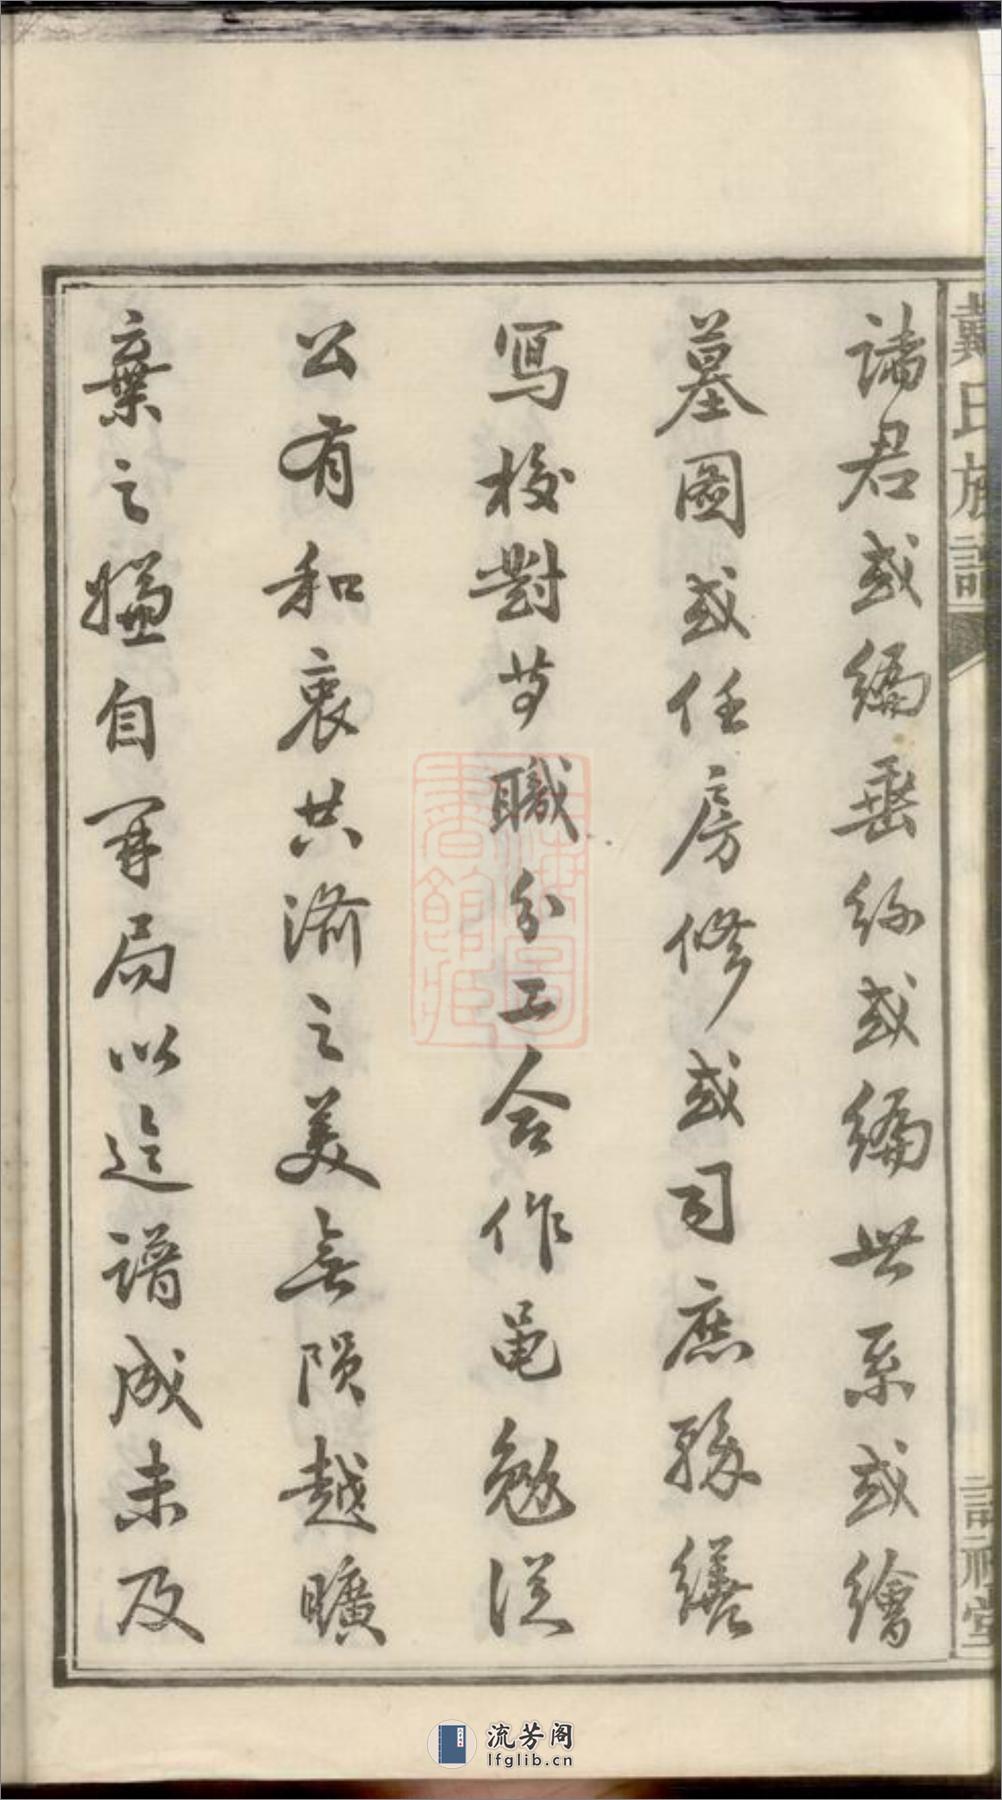 戴氏族譜
諸君或編垂絲或編世系或繪
墓圖或任房修或司庶務繕
寫校對等職分工合作黽勉從
公有和衷共濟之美無隕越曠
棄之嫌自開局以迄譜成未及
流芳阁
lfglib.cn